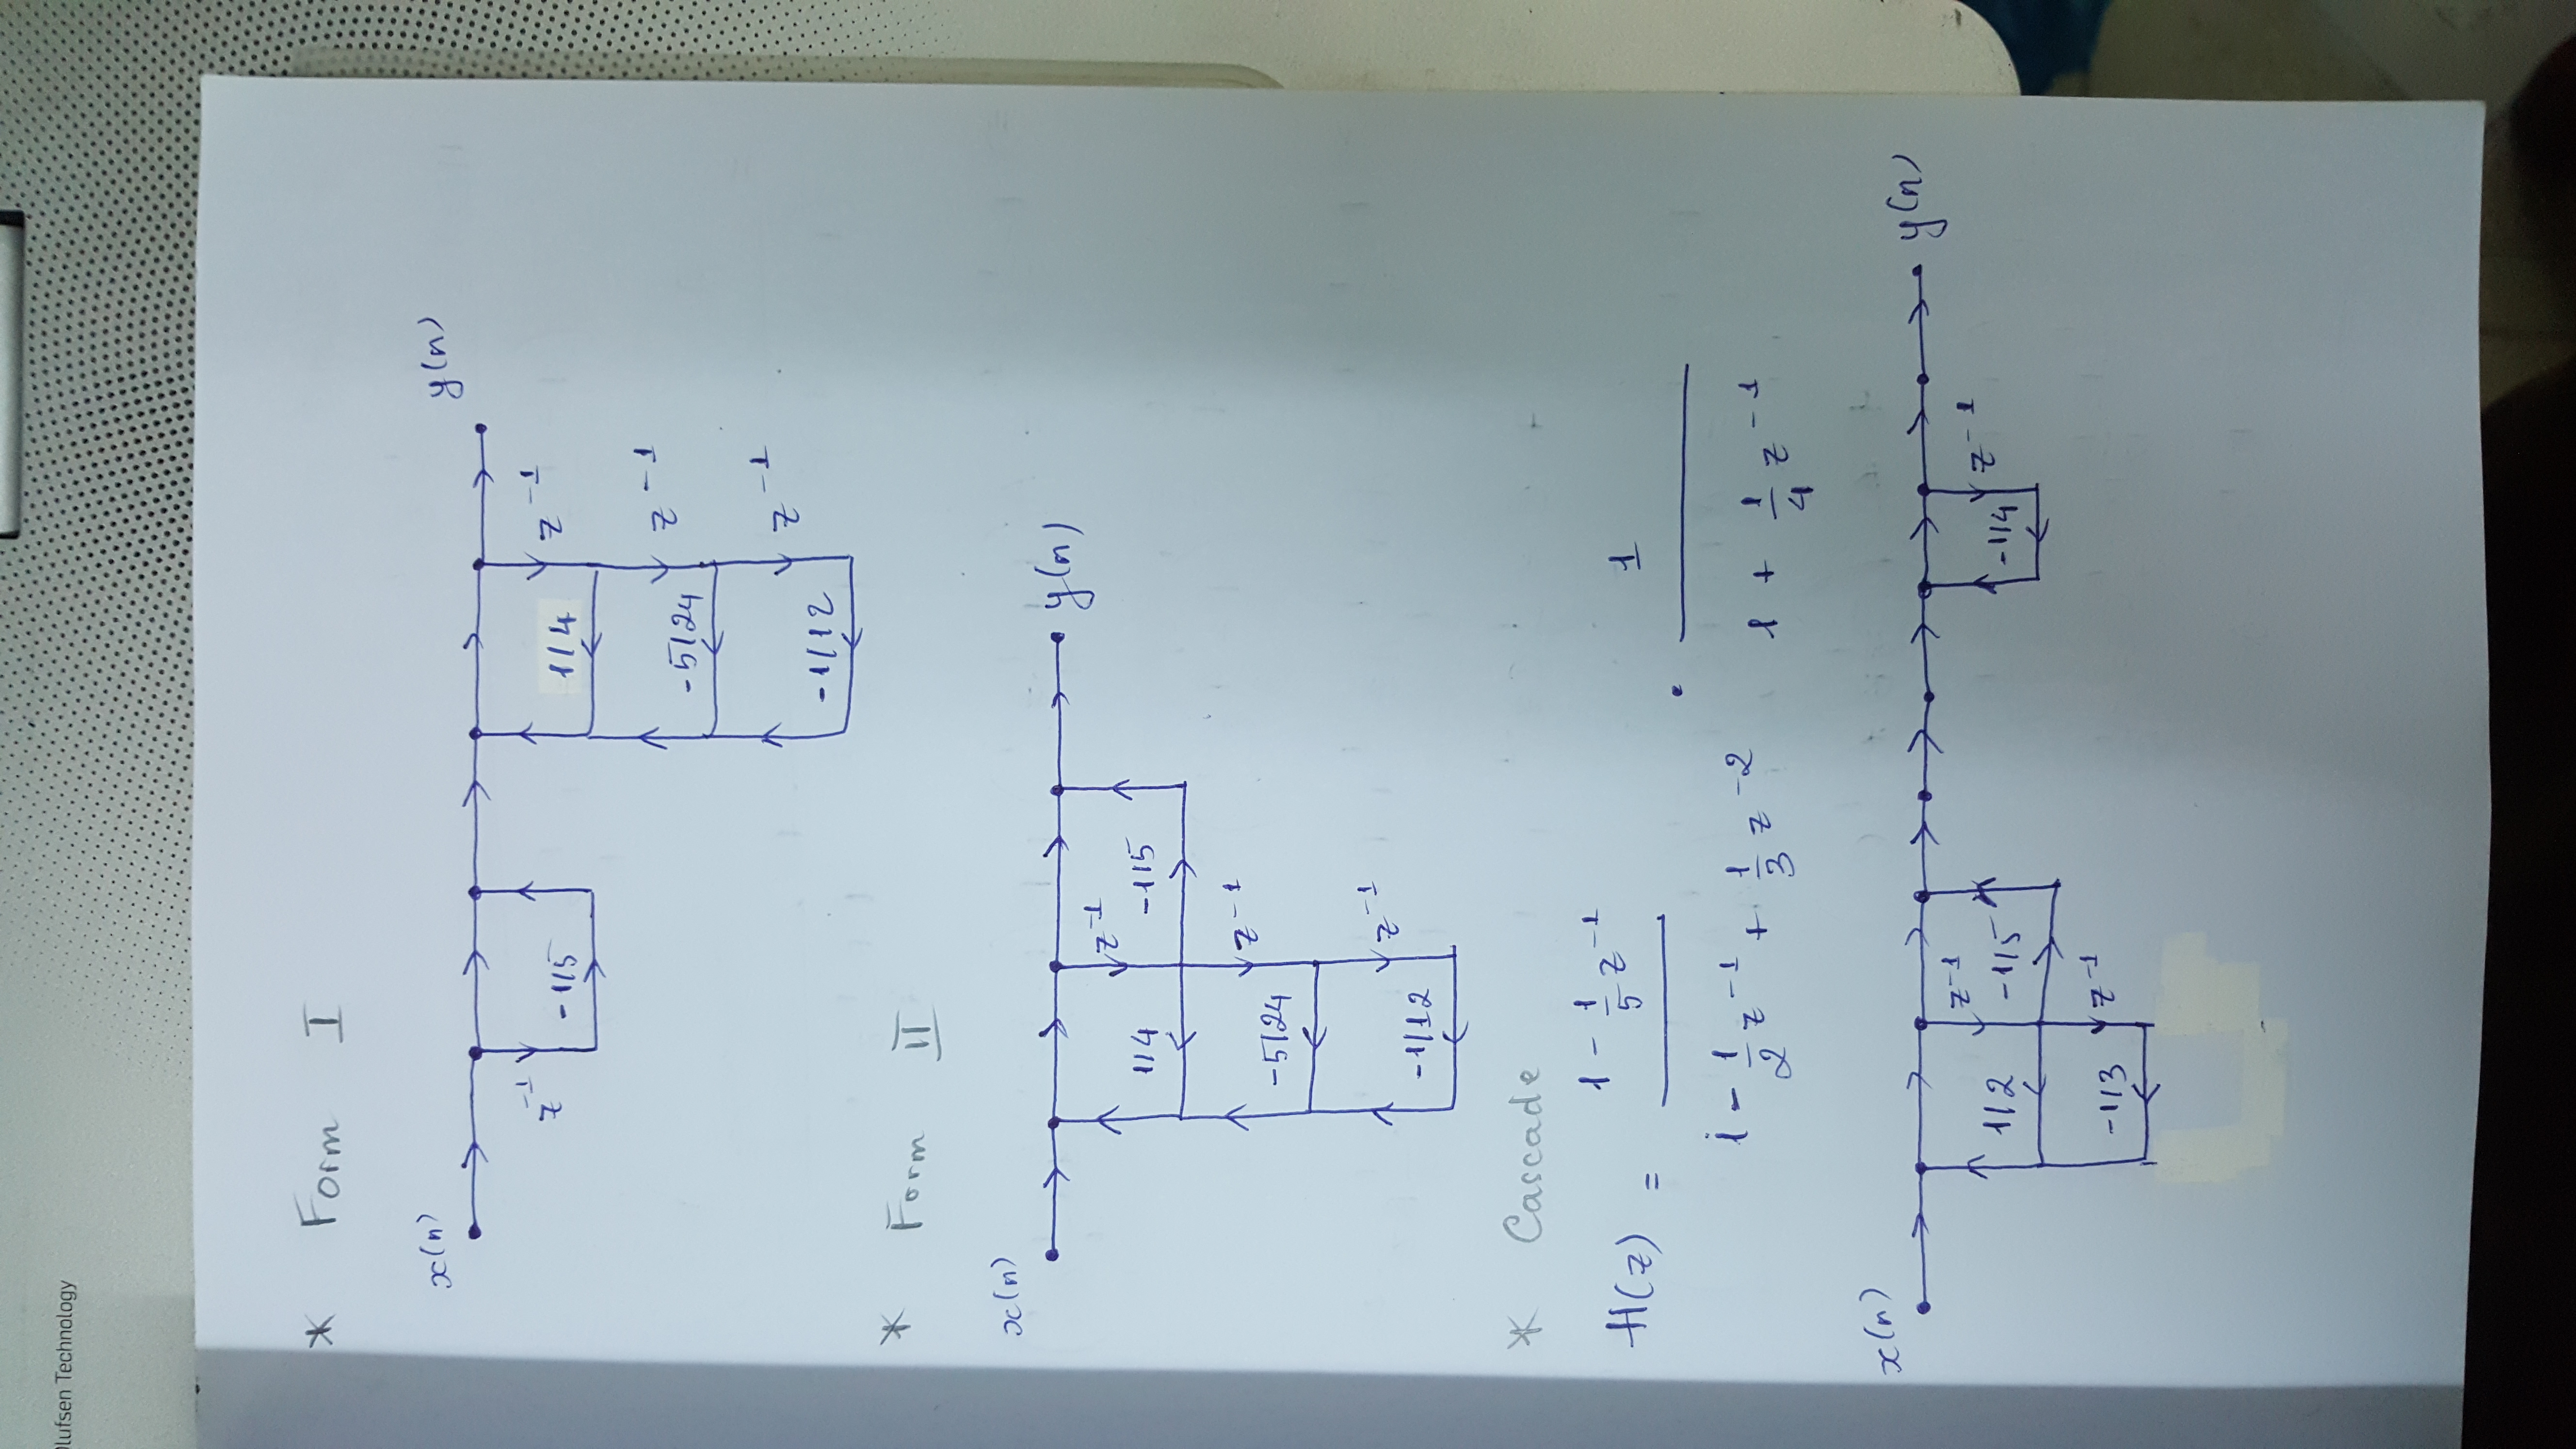 lufsen Technology
* Form I
x(n) y(n)
z⁻¹ -1/5 1/4 z⁻¹
-5/24 z⁻¹
-1/12 z⁻¹
* Form II
x(n) y(n)
z⁻¹
1/4 -1/5
z⁻¹
-5/24
z⁻¹
-1/12
* Cascade
H(z) = (1 - 1/5 z⁻¹) / (1 - 1/2 z⁻¹ + 1/3 z⁻²) · 1 / (1 + 1/4 z⁻¹)
x(n) y(n)
z⁻¹ z⁻¹
1/2 -1/5 -1/4
-1/3 z⁻¹